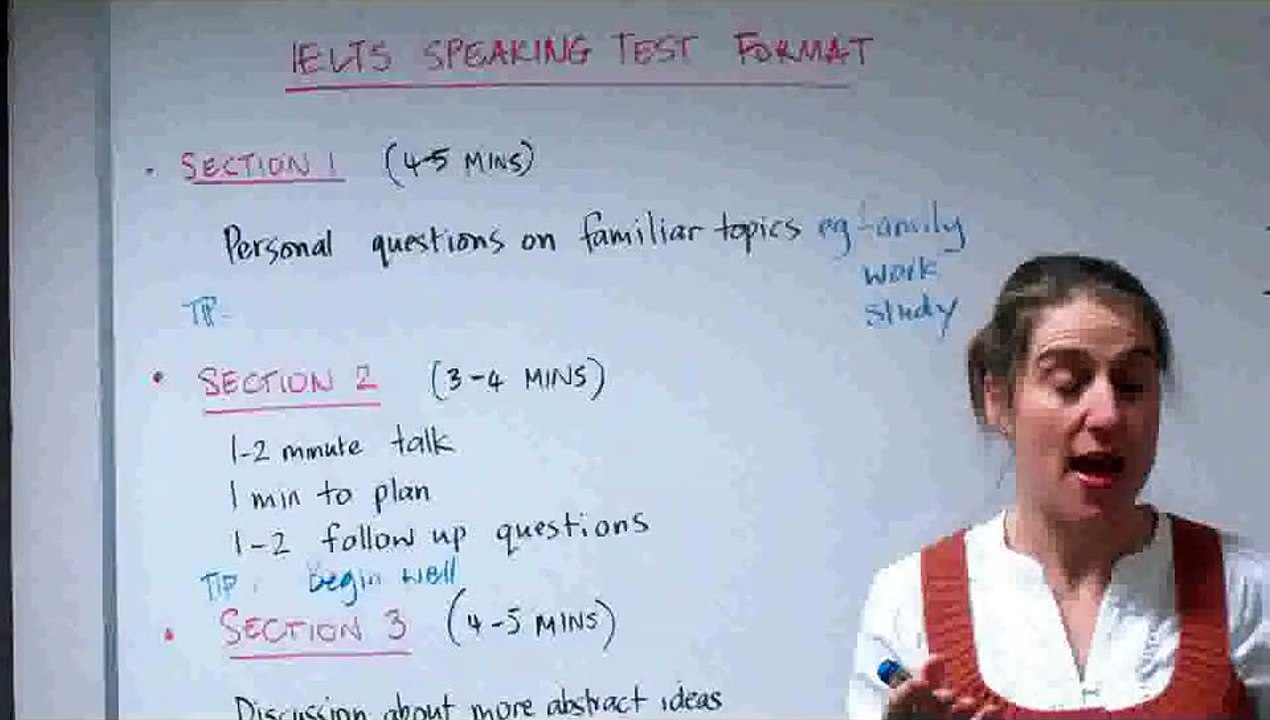 IELTS SPEAKING TEST FORMAT
• SECTION 1 (4-5 MINS)
Personal questions on familiar topics eg family
work
study
TIP.
• SECTION 2 (3-4 MINS)
1-2 minute talk
1 min to plan
1-2 follow up questions
TIP. begin well
• SECTION 3 (4-5 MINS)
Discussion about more abstract ideas